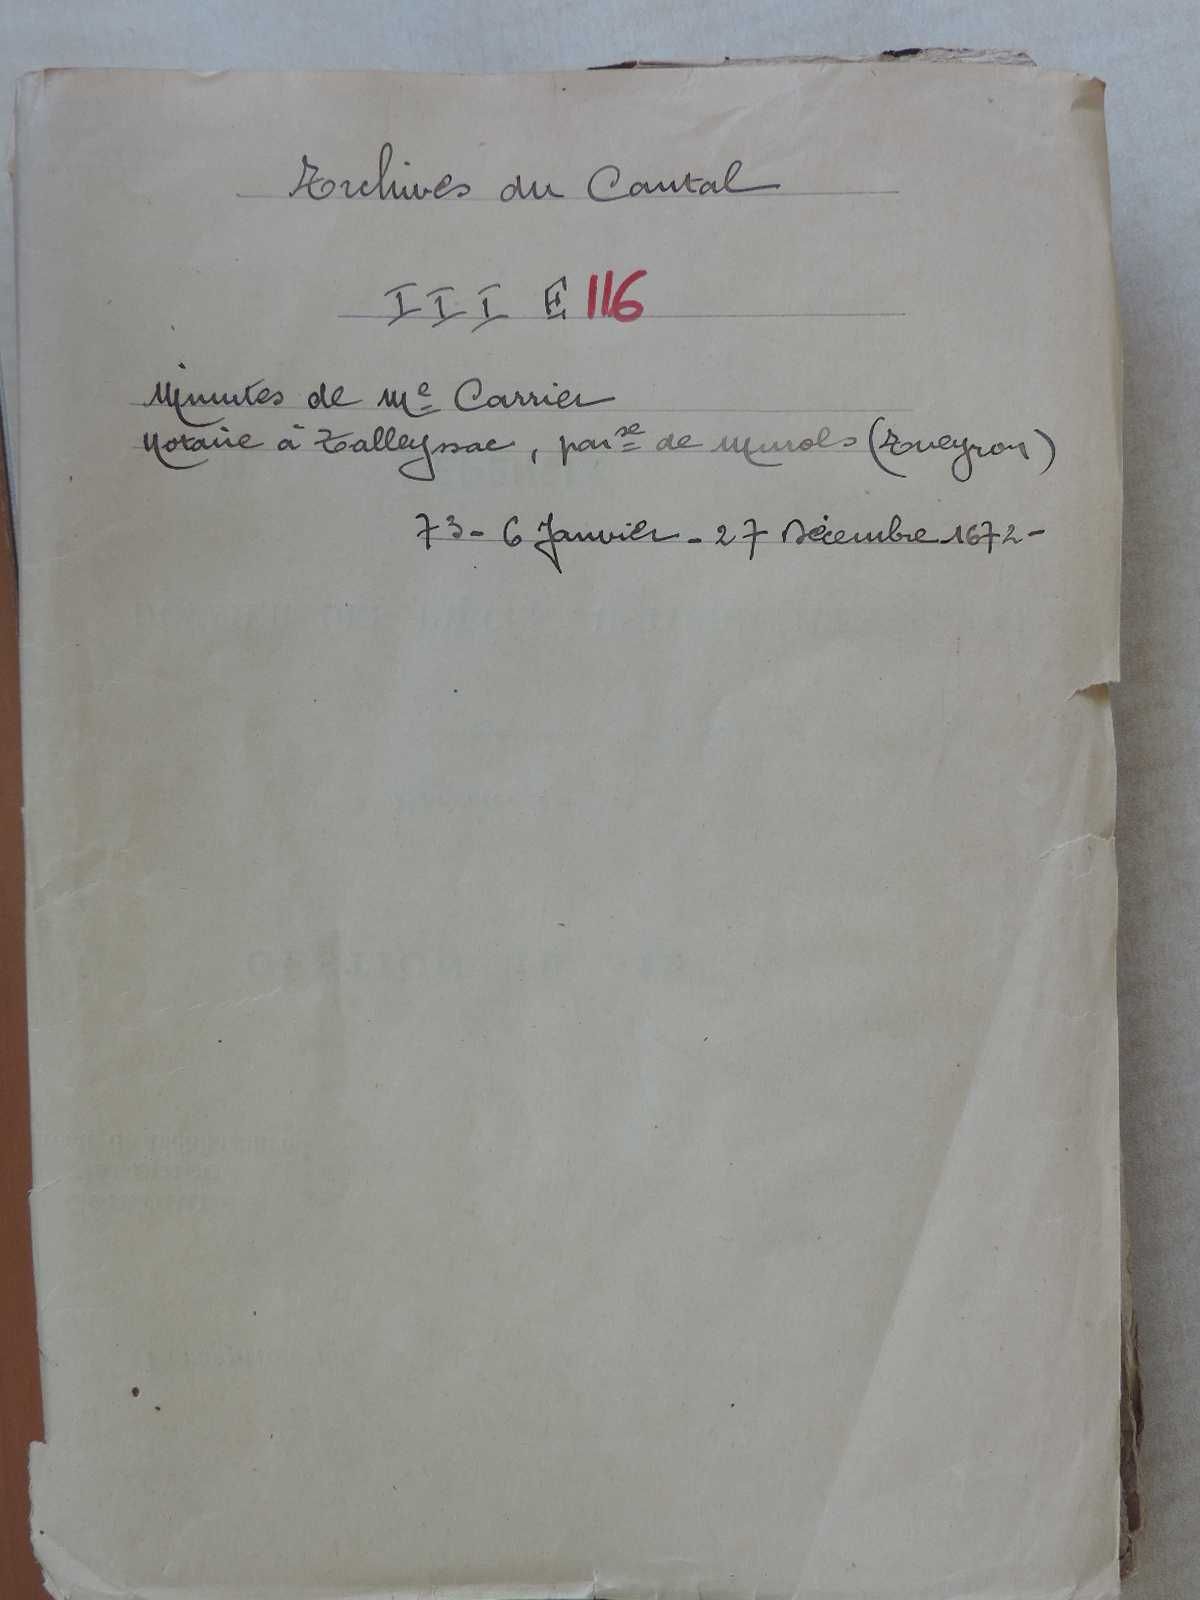 Archives du Cantal
III E 116
Minutes de Me Carrier
Notaire à Talleyssac, parsse de Murols (Aveyron)
73 - 6 Janvier - 27 Décembre 1672 -